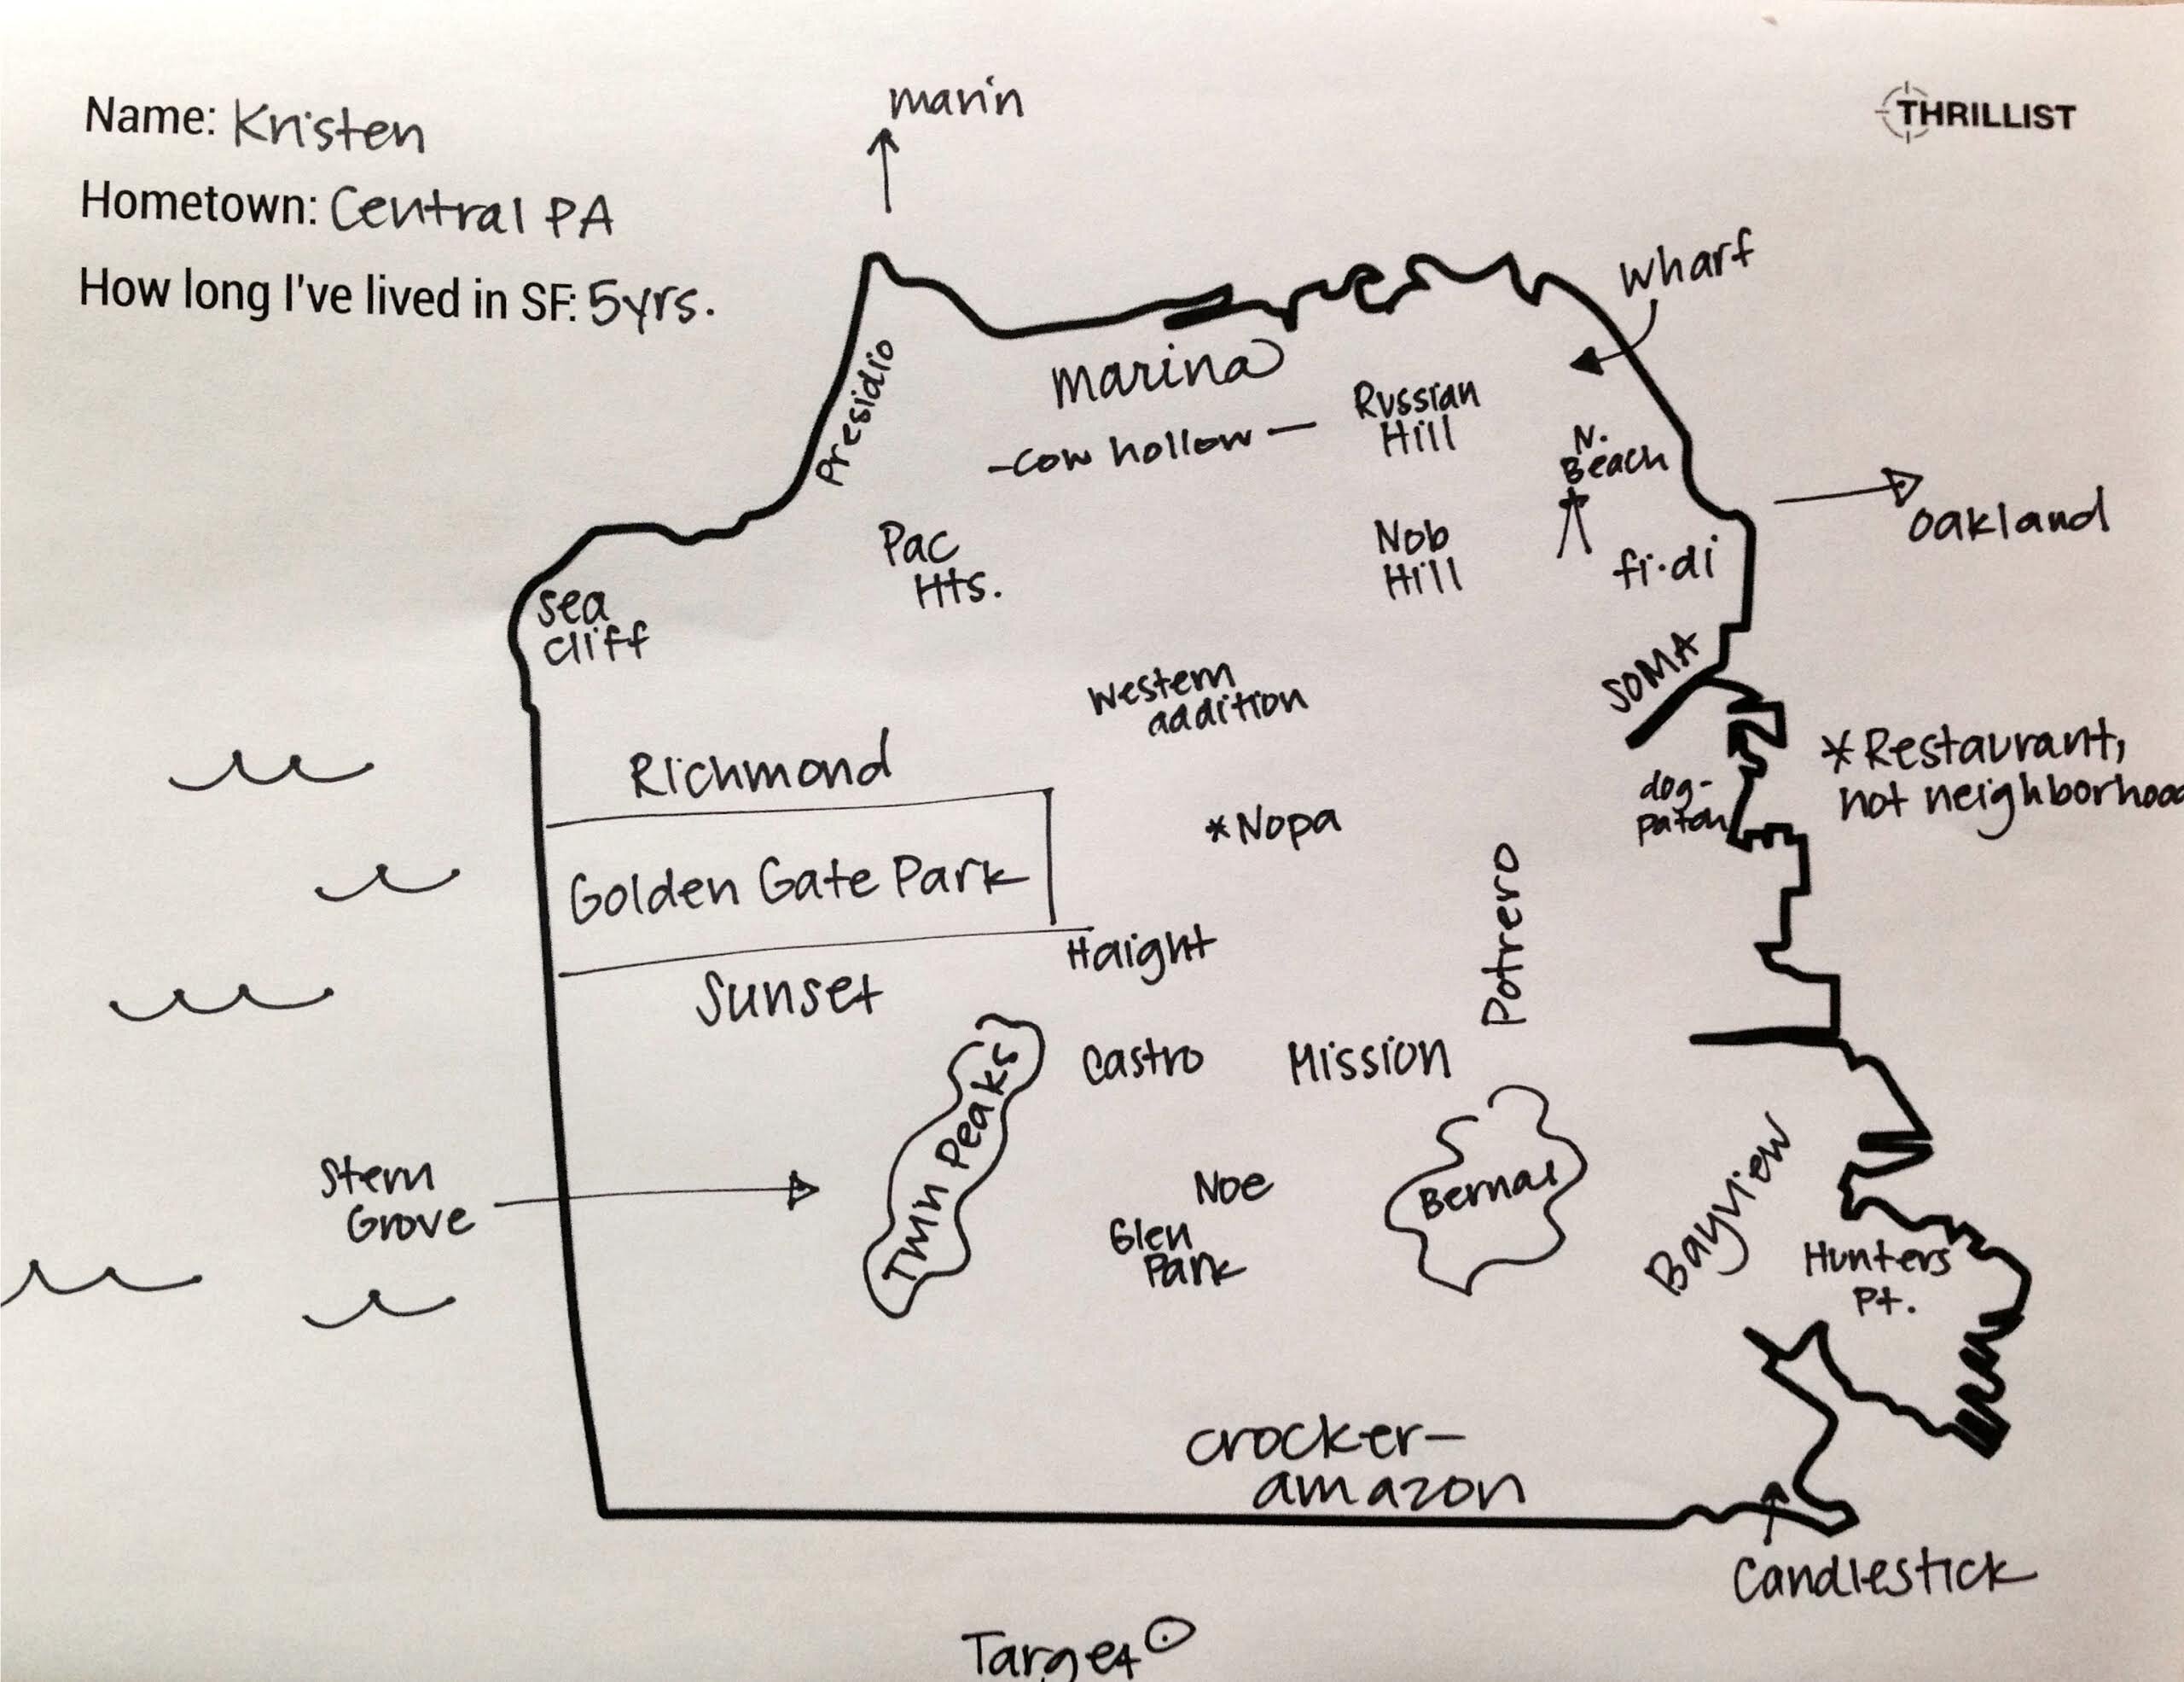 Name: Kristen
Hometown: Central PA
How long I've lived in SF: 5yrs.
THRILLIST
marin
Wharf
Presidio
marina
-cow hollow-
Russian
Hill
N.
Beach
oakland
Pac
Hts.
Nob
Hill
fi·di
sea
cliff
SOMA
Western
addition
Richmond
*Restaurant,
not neighborhood
dog-
patch
*Nopa
Golden Gate Park
Potrero
Haight
Sunset
Castro
Mission
Twin Peaks
Stern
Grove
Noe
Bernal
Glen
Park
Bayview
Hunters
Pt.
crocker-
amazon
Candlestick
Target